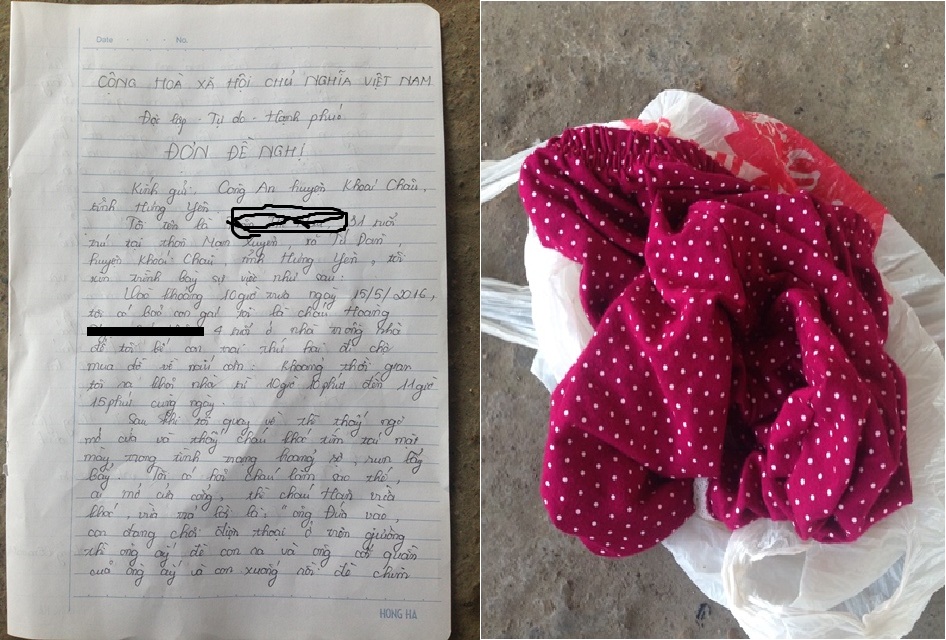 Date No.
CỘNG HOÀ XÃ HỘI CHỦ NGHĨA VIỆT NAM
Độc lập - Tự do - Hạnh phúc
ĐƠN ĐỀ NGHỊ
Kính gửi: Công An huyện Khoái Châu,
tỉnh Hưng Yên
Tôi tên là 31 tuổi
trú tại thôn Mạn Xuyên, xã Tứ Dân,
huyện Khoái Châu tỉnh Hưng Yên, tôi
xin trình bày sự việc như sau:
Vào khoảng 10giờ trưa ngày 15/5/2016,
tôi có bảo con gái tôi là cháu Hoàng
4 tuổi ở nhà trông nhà
để tôi bế con trai thứ hai đi chợ
mua đồ về nấu cơm: Khoảng thời gian
tôi ra khỏi nhà từ 10giờ 10phút đến 11giờ
15phút cùng ngày.
Sau khi tôi quay về thì thấy ngõ
mở cửa và thấy cháu khóc tím tái mặt
mày trong tình trạng hoảng sợ, run lẩy
bẩy. Tôi có hỏi cháu làm sao thế,
ai mở cửa cổng, thì cháu vừa
khóc, vừa trả lời là: "ông Đưa vào,
con đang chơi điện thoại ở trên giường
thì ông ấy đè con ra và ông cởi quần
của ông ấy và con xuống rồi đè chim
HONG HA